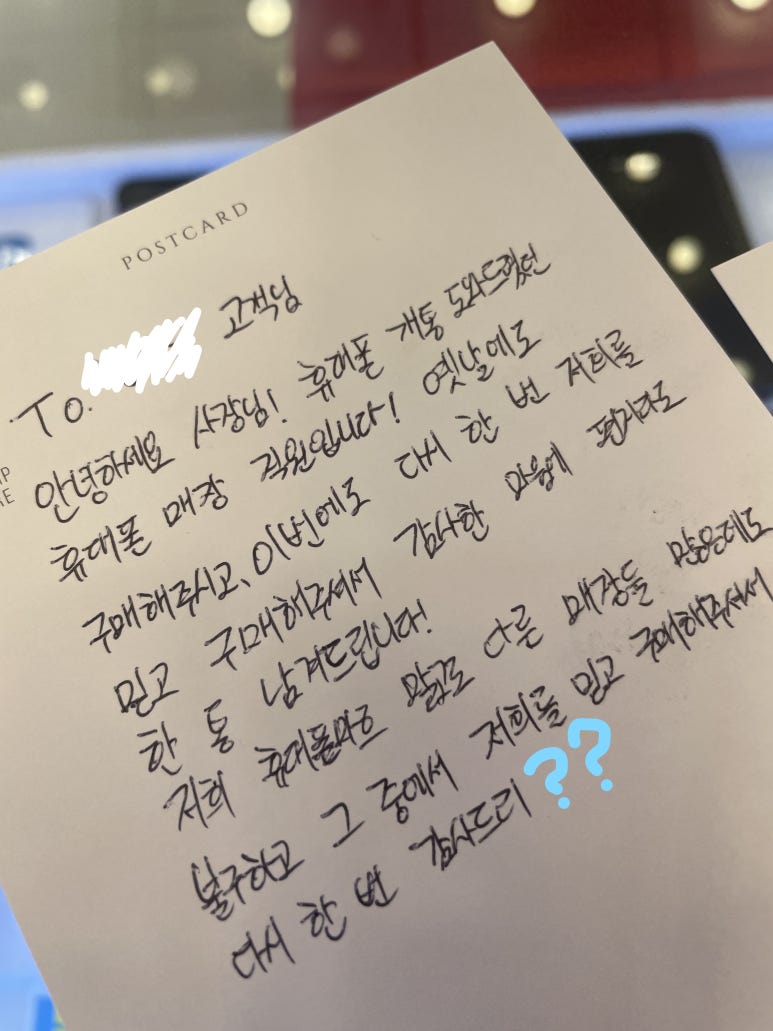 POSTCARD
To. 고객님
안녕하세요 사장님! 휴대폰 개통 도와드렸던
휴대폰 매장 직원입니다! 옛날에도
구매해주시고, 이번에도 다시 한 번 저희를
믿고 구매해주셔서 감사한 마음에 편지라도
한 통 남겨드립니다!
저희 휴대폰마트 말고도 다른 매장들 많은데도
불구하고 그 중에서 저희를 믿고 구매해주셔서
다시 한 번 감사드리 ??